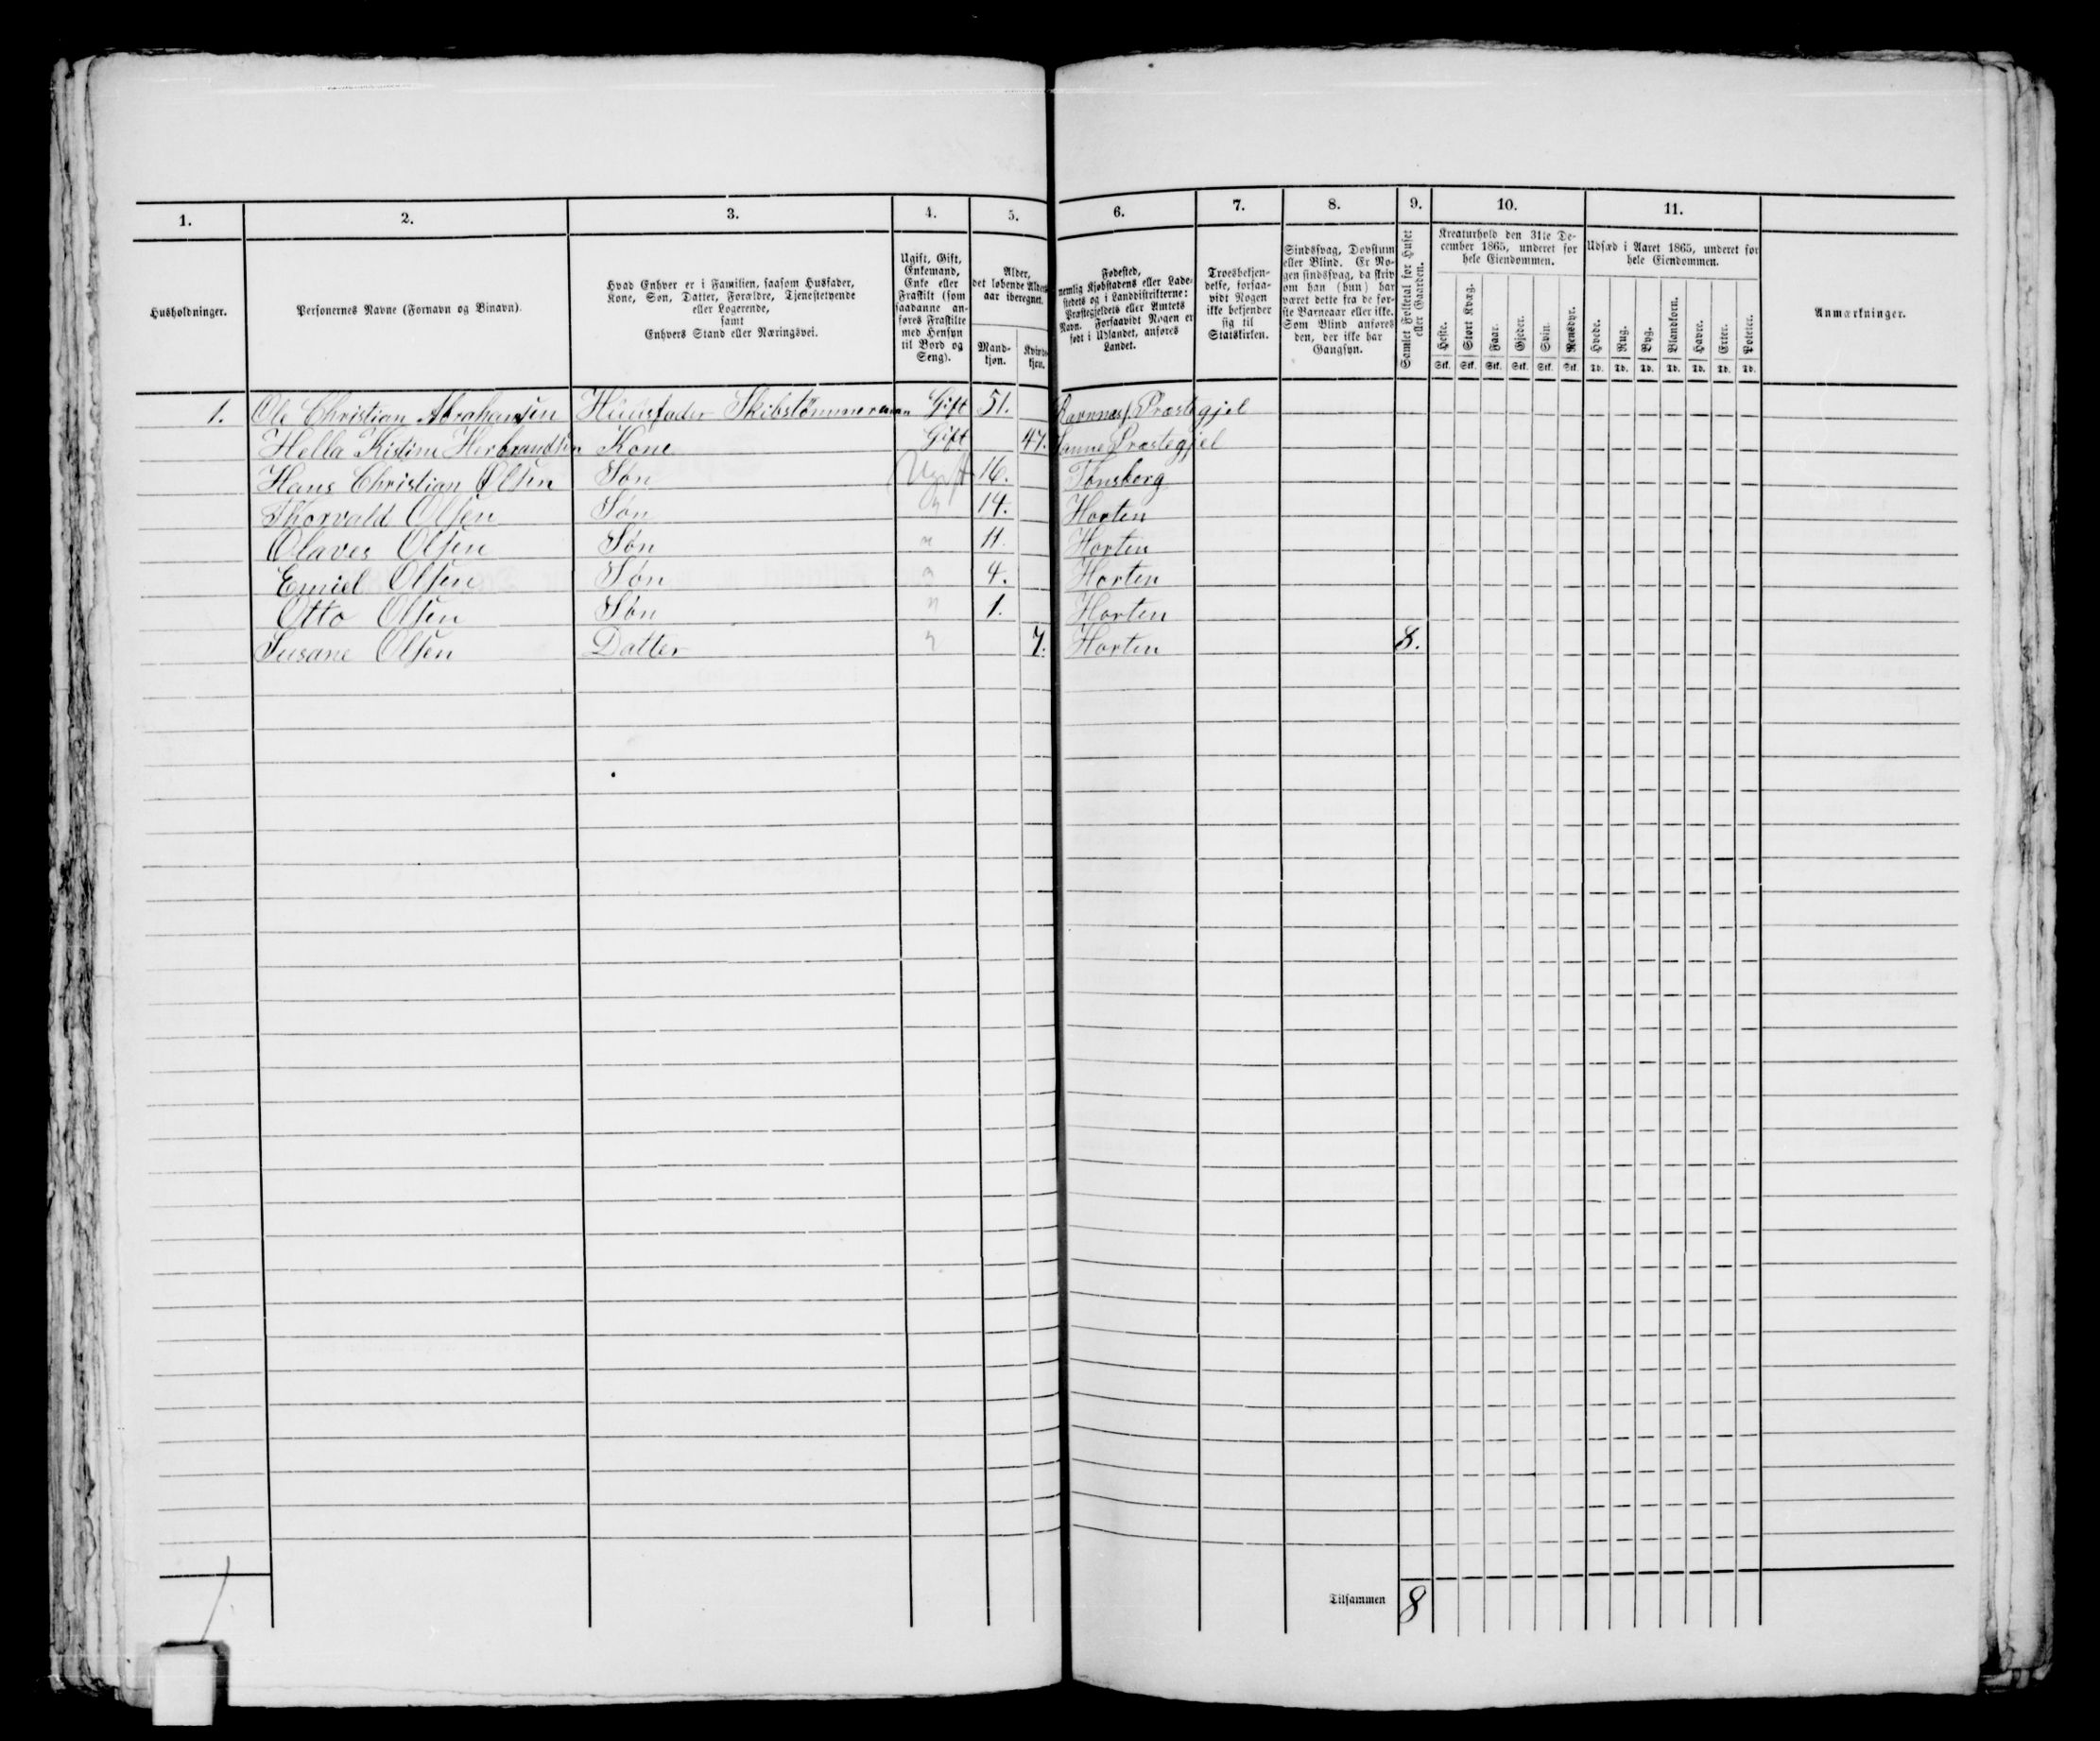 1. 2. 3. 4. 5. 6. 7. 8. 9. 10. 11.
Husholdninger.
Personernes Navne (Fornavn og Binavn).
Hvad Enhver er i Familien, saasom Husfader,
Kone, Søn, Datter, Forældre, Tjenestetyende
eller Logerende,
samt
Enhvers Stand eller Næringsvei.
Ugift, Gift,
Enkemand,
Enke eller
Fraskilt (som
saadanne an-
føres Fraskilte
med Hensyn
til Bord og
Seng).
Alder,
det løbende Alders-
aar iberegnet.
Mand-
kjøn.
Kvinde-
kjøn.
Fødested,
nemlig Kjøbstadens eller Lade-
stedets og i Landdistrikterne:
Præstegjeldets eller Amtets
Navn. Forsaavidt Nogen er
født i Udlandet, anføres
Landet.
Troesbekjen-
delse, forsaa-
vidt Nogen
ikke bekjender
sig til
Statskirken.
Sindssvag, Døvstum
eller Blind. Er No-
gen sindssvag, da skriv
om han (hun) har
været dette fra de før-
ste Barneaar eller ikke.
Som Blind anføres
den, der ikke har
Gangsyn.
Samlet Folketal for Huset
eller Gaarden.
Kreaturhold den 31te De-
cember 1865, underet for
hele Eiendommen.
Heste. Stort Kvæg. Faar. Gjeder. Svin. Rensdyr.
Stk. Stk. Stk. Stk. Stk. Stk.
Udsæd i Aaret 1865, underet for
hele Eiendommen.
Hvede. Rug. Byg. Blandkorn. Havre. Erter. Poteter.
Td. Td. Td. Td. Td. Td. Td.
Anmærkninger.
1. Ole Christian Abrahamsen Huusfader Skibstømmermann Gift 51. Ravnnes Præstegjel
Hella Kistine Herbrandsen Kone Gift 47. Præstegjel
Hans Christian Olsen Søn Ugift 16. Tønsberg
Thorvald Olsen Søn " 14. Horten
Olaves Olsen Søn " 11. Horten
Emiel Olsen Søn " 4. Horten
Otto Olsen Søn " 1. Horten
Susane Olsen Datter " 7. Horten 8.
1
Tilsammen 8